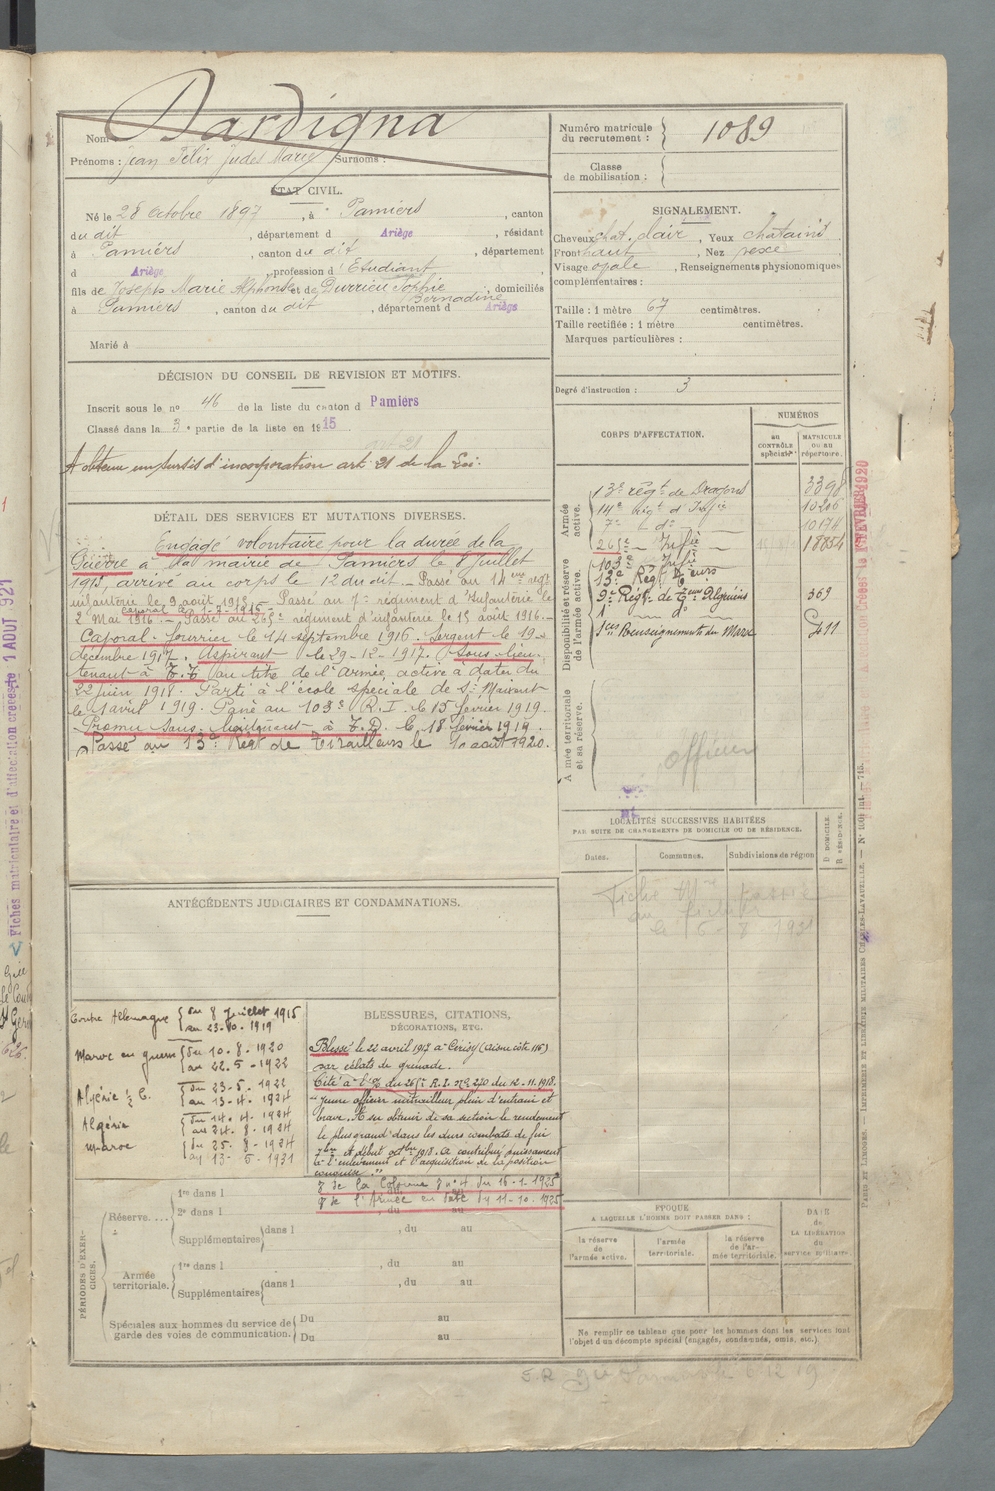 Nom Dardigna
Prénoms : Jean Félix Judes Marie Surnoms :
Numéro matricule du recrutement : 1089
Classe de mobilisation :
ÉTAT CIVIL.
Né le 28 Octobre 1897, à Pamiers, canton
du dit, département d Ariège, résidant
à Pamiers, canton du dit, département
d Ariège, profession d'Etudiant
fils de Joseph Marie Alphonse et de Durrieu Sophie Bernadine, domiciliés
à Pamiers, canton du dit, département d Ariège
Marié à
SIGNALEMENT.
Cheveux chat. clair, Yeux chatains
Front haut, Nez vexe
Visage ovale, Renseignements physionomiques
complémentaires :
Taille : 1 mètre 67 centimètres.
Taille rectifiée : 1 mètre centimètres.
Marques particulières :
Degré d'instruction : 3
DÉCISION DU CONSEIL DE REVISION ET MOTIFS.
Inscrit sous le n° 46 de la liste du canton d Pamiers
Classé dans la 3e partie de la liste en 1915
A obtenu un sursis d'incorporation art. 21 de la Loi.
CORPS D'AFFECTATION.
NUMÉROS
au CONTRÔLE spécial
MATRICULE ou au répertoire.
Armée active.
13e régt de Dragons 3398
14e Régt d'Infie 10206
7e do 10174
265e Infie 18854
Disponibilité et réserve de l'armée active.
103e Infie
13e Régt Teurs
9e Régt de Teurs Algériens 369
1 d°
Sces Renseignements du Maroc 411
Armée territoriale et sa réserve.
officier
DÉTAIL DES SERVICES ET MUTATIONS DIVERSES.
Engagé volontaire pour la durée de la
Guerre à la mairie de Pamiers le 8 Juillet
1915, arrivé au corps le 12 du dit. - Passé au 14eme régt
infanterie le 9 août 1915. - Passé au 7e régiment d'Infanterie le
caporal le 1-7-1916
2 Mai 1916. - Passé au 265e régiment d'infanterie le 15 août 1916. -
Caporal-fourrier le 14 septembre 1916. Sergent le 19
décembre 1917. Aspirant le 29-12-1917. Sous-lieu-
tenant à T.T. au titre de l'Armée active à dater du
22 juin 1918. Parti à l'école spéciale de St Maixent
le 1 avril 1919. Passé au 103e R.I. le 15 février 1919.
Promu Sous-lieutenant à T.D. le 18 février 1919.
Passé au 13e Régt de Tirailleurs le 10 août 1920.
LOCALITÉS SUCCESSIVES HABITÉES
PAR SUITE DE CHANGEMENTS DE DOMICILE OU DE RÉSIDENCE.
Dates.
Communes.
Subdivisions de région
D DOMICILE.
R RÉSIDENCE.
Fiche Mle passée
au fichier
le 6-8-1931
ANTÉCÉDENTS JUDICIAIRES ET CONDAMNATIONS.
Contre Allemagne { du 8 Juillet 1915
au 23-10-1919
Maroc en guerre { du 10-8-1920
au 22-5-1922
Algérie { du 23-5-1922
au 13-4-1924
Algérie { du 14-4-1924
au 24-8-1924
Maroc { du 25-8-1924
au 13-5-1931
BLESSURES, CITATIONS,
DÉCORATIONS, ETC.
Blessé le 22 avril 1917 à Cerisy (Aisne côte 116)
par éclats de grenade.
Cité à l'O. du 265e R.I. n° 270 du 12-11-1918.
"jeune officier mitrailleur plein d'entrain et
brave. A su obtenir de sa section le rendement
le plus grand dans les durs combats de fin
7bre et début octbre 1918. A contribué puissamment
à l'enlèvement et l'acquisition de la position
ennemie."
de la Colonne n° 4 du 16-1-1925
de l'Armée du 11-10-1925
PÉRIODES D'EXERCICES.
Réserve.... 1re dans l
2e dans l , du au
Supplémentaires dans l , du au
Armée territoriale. 1re dans l , du au
Supplémentaires dans l , du au
Spéciales aux hommes du service de Du au
garde des voies de communication. Du au
EPOQUE
A LAQUELLE L'HOMME DOIT PASSER DANS :
la réserve de l'armée active.
l'armée territoriale.
la réserve de l'armée territoriale.
DATE de LA LIBÉRATION du service militaire.
Ne remplir ce tableau que pour les hommes dont les services font
l'objet d'un décompte spécial (engagés, condamnés, omis, etc.).
PARIS ET LIMOGES. — IMPRIMERIE ET LIBRAIRIE MILITAIRES CHARLES-LAVAUZELLE.
Fiches matriculaire et d'affectation creées le 1 AOUT 921